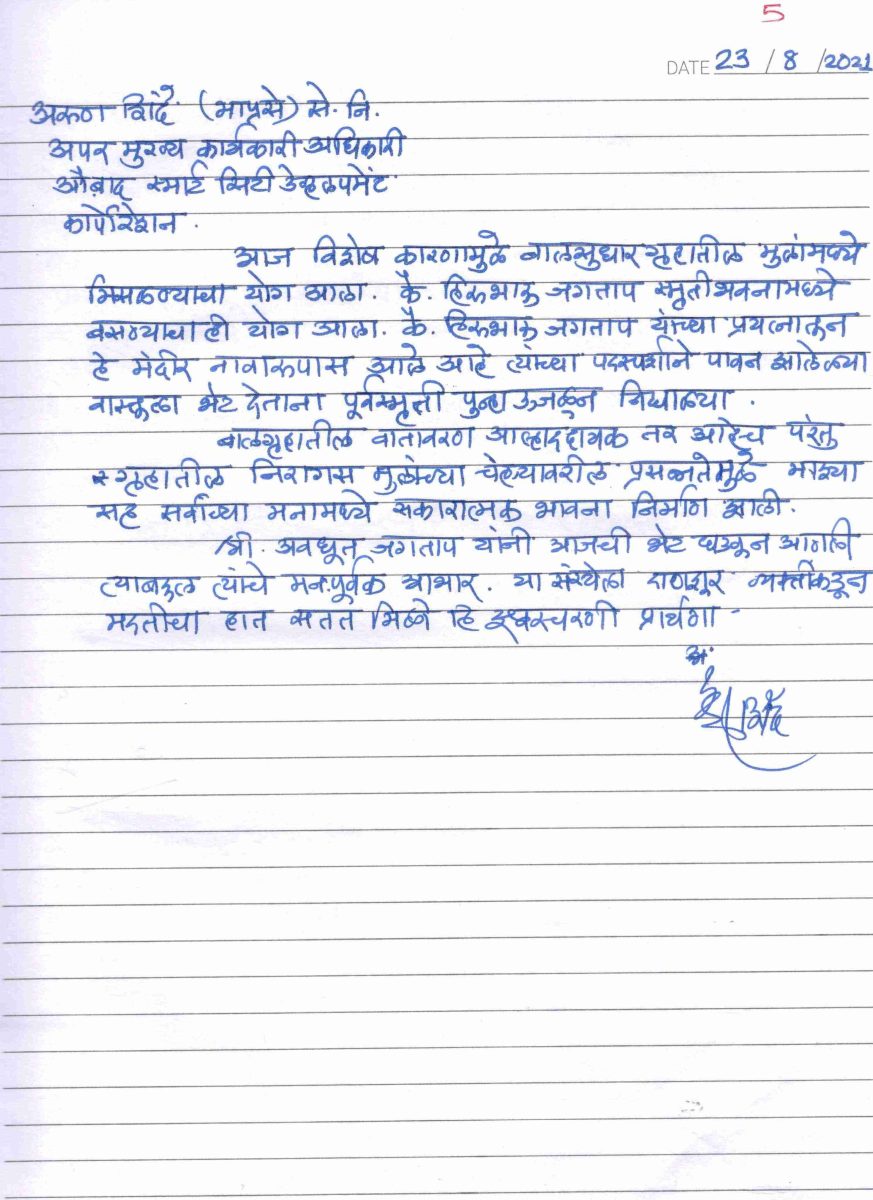 5
DATE 23 / 8 /2021
अरुण शिंदे (भाप्रसे) से. नि.
अपर मुख्य कार्यकारी अधिकारी
औ.बाद स्मार्ट सिटी डेव्हलपमेंट
कार्पोरेशन.
आज विशेष कारणामुळे बालसुधार गृहातील मुलांमध्ये
मिसळण्याचा योग आला. कै. हिरुभाऊ जगताप स्मृतीभवनामध्ये
बसण्याचाही योग आला. कै. हिरुभाऊ जगताप यांच्या प्रयत्नातून
हे मंदीर नावारुपास आले आहे त्यांच्या पदस्पर्शाने पावन झालेल्या
वास्तूला भेट देताना पूर्वस्मृती पुन्हा ऊजळून निघाल्या.
बालगृहातील वातावरण आल्हाददायक तर आहेच परंतु
गृहातील निरागस मुलांच्या चेहऱ्यावरील प्रसन्नतेमुळे माझ्या
सह सर्वांच्या मनामध्ये सकारात्मक भावना निर्माण झाली.
श्री. अवधूत जगताप यांनी आजची भेट घडवून आणली
त्याबद्दल त्यांचे मनःपूर्वक आभार. या संस्थेला दाणशूर व्यक्तींकडून
मदतीचा हात सतत मिळो हि ईश्वरचरणी प्रार्थना -